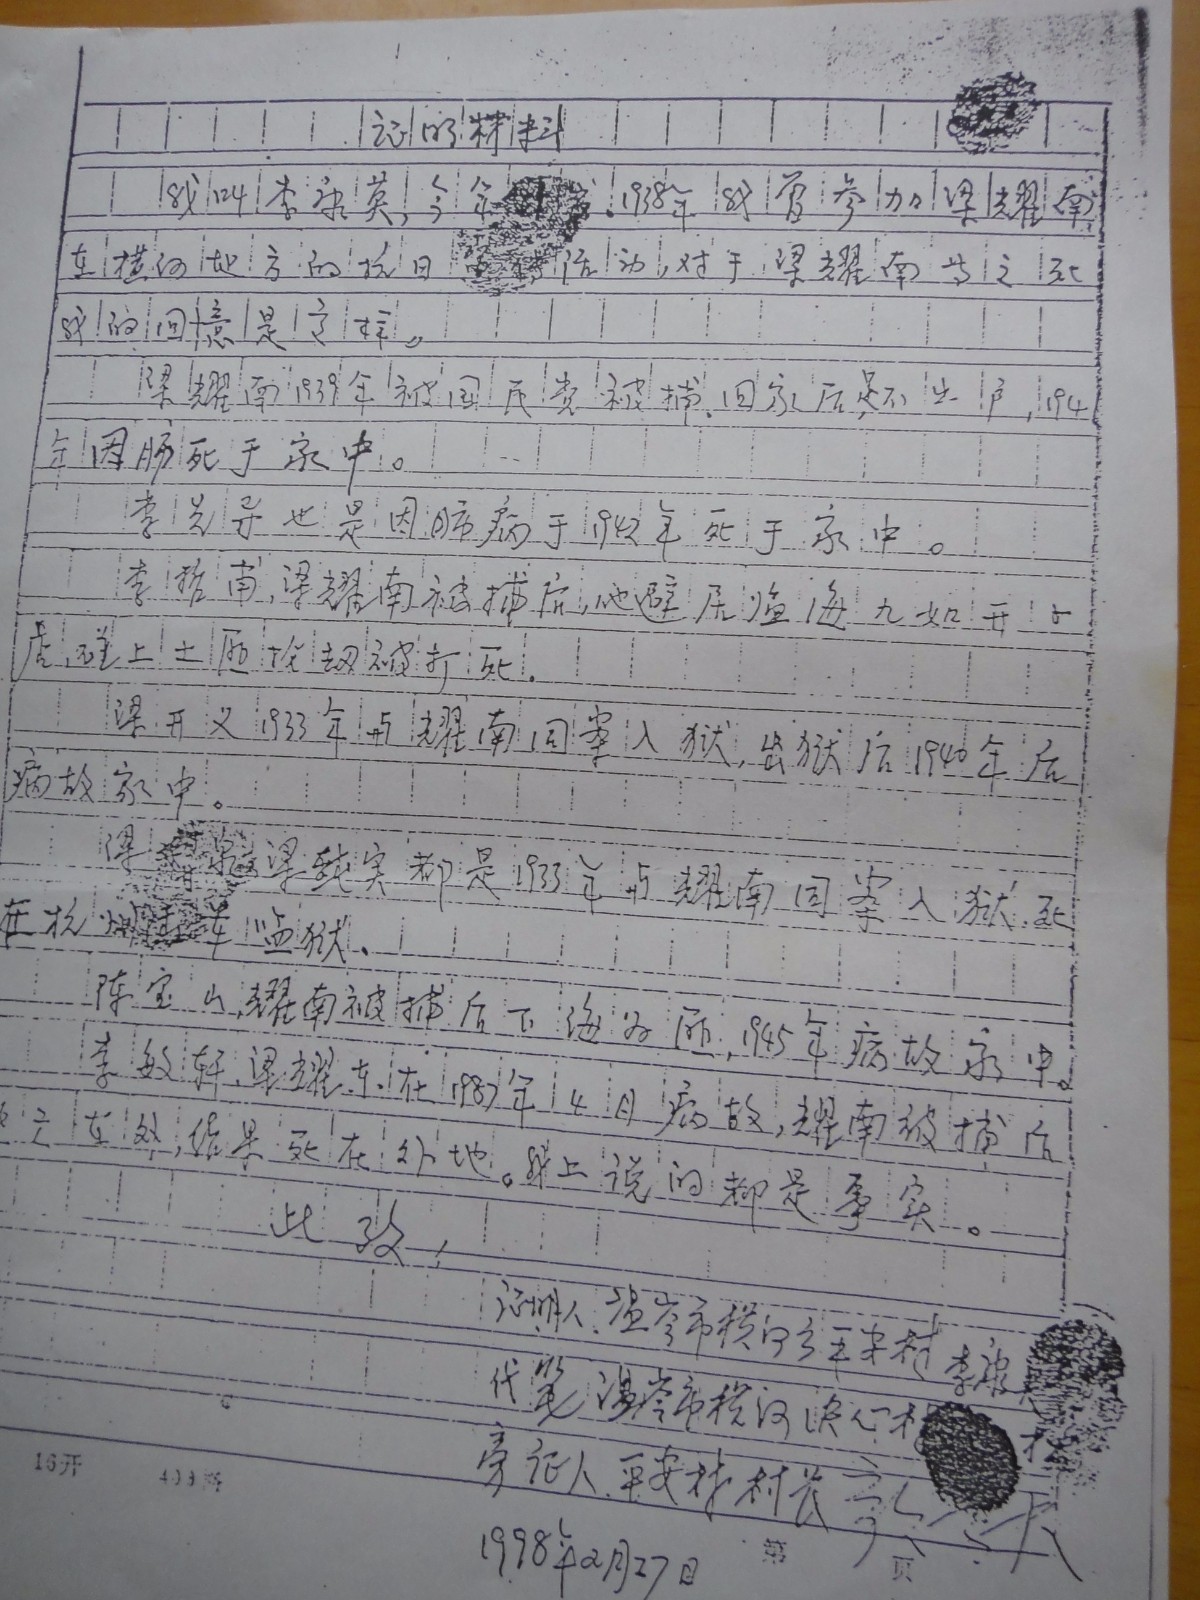 证明材料
我叫李永英,今年 岁.1938年我曾参加梁耀南
在横河地方的抗日 活动,对于梁耀南等之死
我的回意是这样。
梁耀南1939年被国民党被捕.回家后足不出户,194
年因肺死于家中。
李 也是因肺病于1942年死于家中。
李哲甫,梁耀南被捕后,他避居临海九如开小
店,碰上土匪抢劫被打死.
梁开义1933年与耀南同案入狱,出狱后1940年后
病故家中。
梁 梁纯实都是1933年与耀南同案入狱.死
在杭州 监狱.
陈宝山,耀南被捕后下海为匪,1945年病故家中。
李敏轩,梁耀东.在1987年4月病故,耀南被捕后
结果死在外地。我上说的都是事实。
此致,
证明人.温岭市横河 平安村 李永
代笔 温岭市横河 心村
旁证人.平安村村长
1998年2月27日
16开
第 页